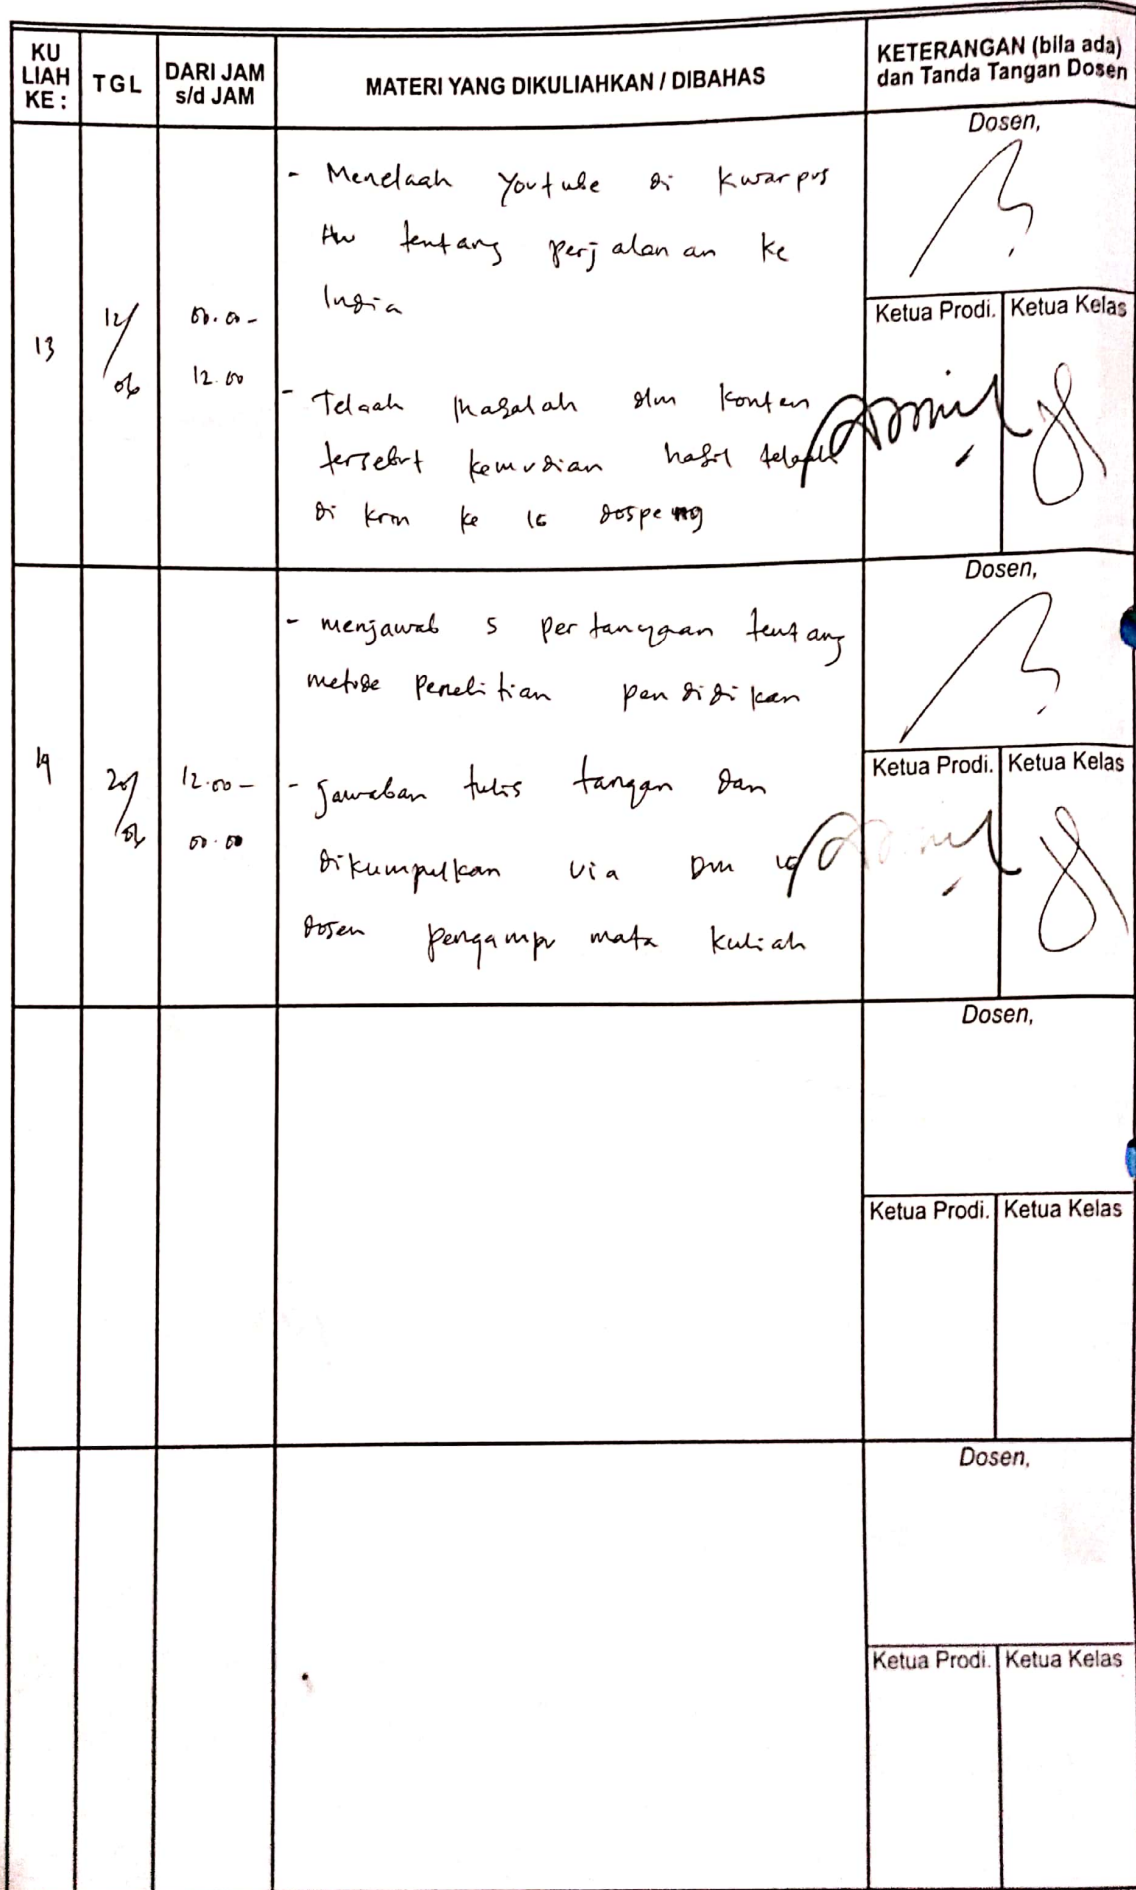 KU
LIAH
KE :
TGL
DARI JAM
s/d JAM
MATERI YANG DIKULIAHKAN / DIBAHAS
KETERANGAN (bila ada)
dan Tanda Tangan Dosen
13
12/
06
00.00 -
12.00
- Menelaah Youtube di Kwarpus
HW tentang perjalanan ke
India
- Telaah masalah dlm konten
tersebut kemudian hasil telaah
di krm ke IG dospeng
Dosen,
Ketua Prodi.
Ketua Kelas
14
20/
06
12.00 -
00.00
- menjawab 5 pertanyaan tentang
metode penelitian pendidikan
- Jawaban tulis tangan dan
dikumpulkan via Dm ig
dosen pengampu mata kuliah
Dosen,
Ketua Prodi.
Ketua Kelas
Dosen,
Ketua Prodi.
Ketua Kelas
Dosen,
Ketua Prodi.
Ketua Kelas